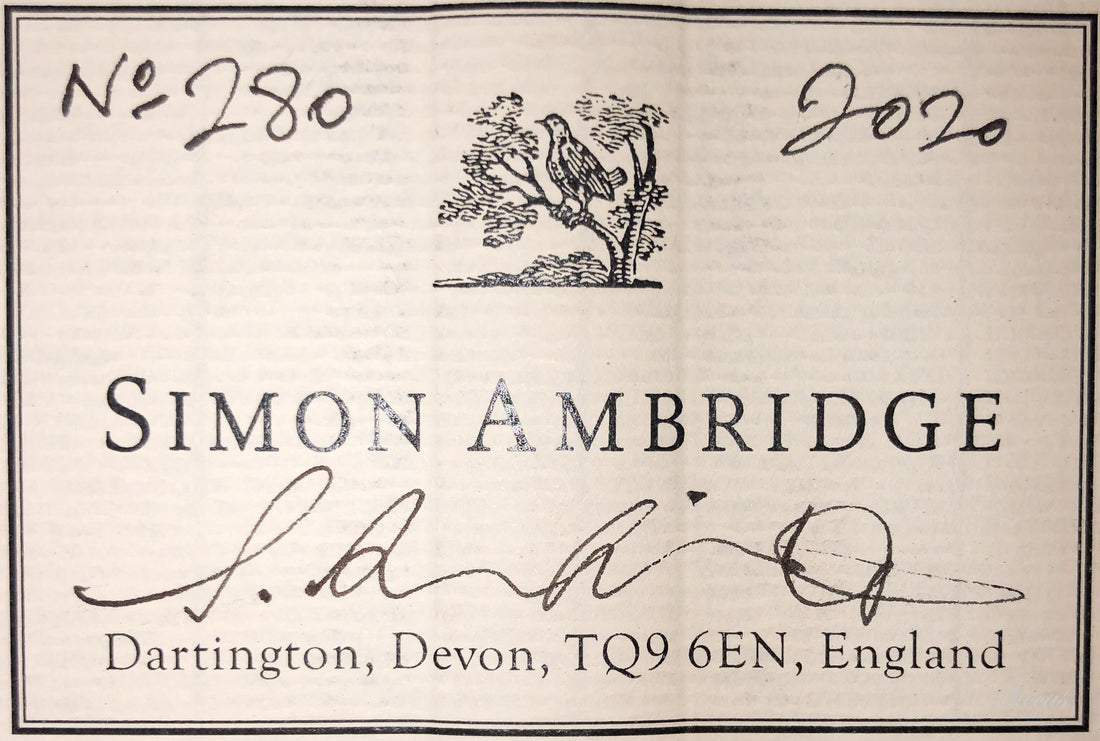 Nº 280 2020
SIMON AMBRIDGE
S. Ambridge
Dartington, Devon, TQ9 6EN, England